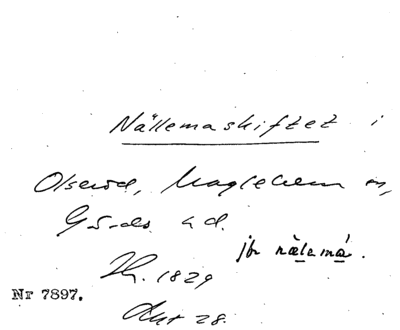 Nällemaskiftet i
Olseröd, Maglehem sn,
Gärds hd.
jfr nälamå.
1829
Nr 7897.
Akt 28.